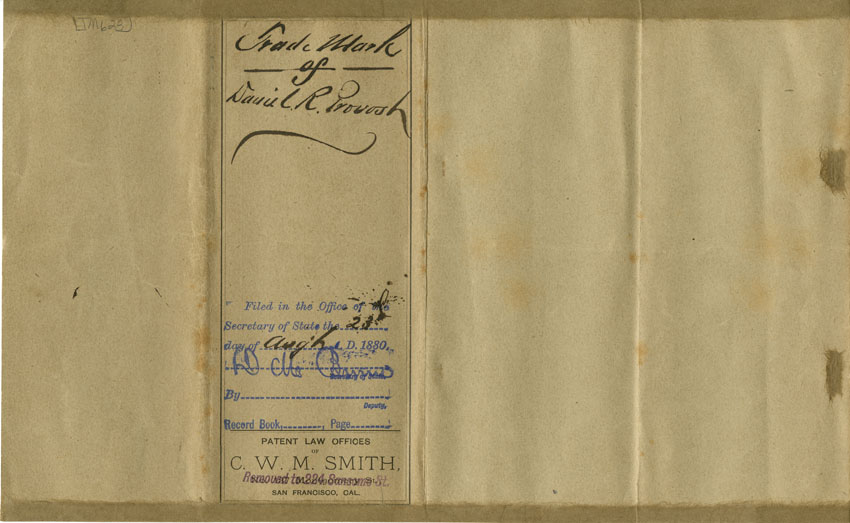 [TM623]
Trade Mark
of
Daniel. R. Provost
Filed in the Office of the
Secretary of State the 23d
day of Aug't A. D. 1880.
D M Burns
Secretary of State.
By
Deputy.
Record Book, , Page
PATENT LAW OFFICES
OF
C. W. M. SMITH,
Removed to 224 Sansome St.
SAN FRANCISCO, CAL.